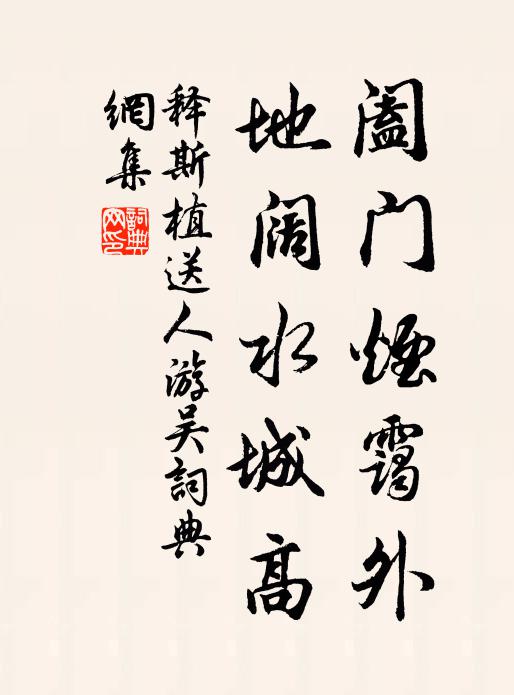 阖门煙霭外
地阔水城高
释斯植送人游吴詞典
網集
詞典
网印